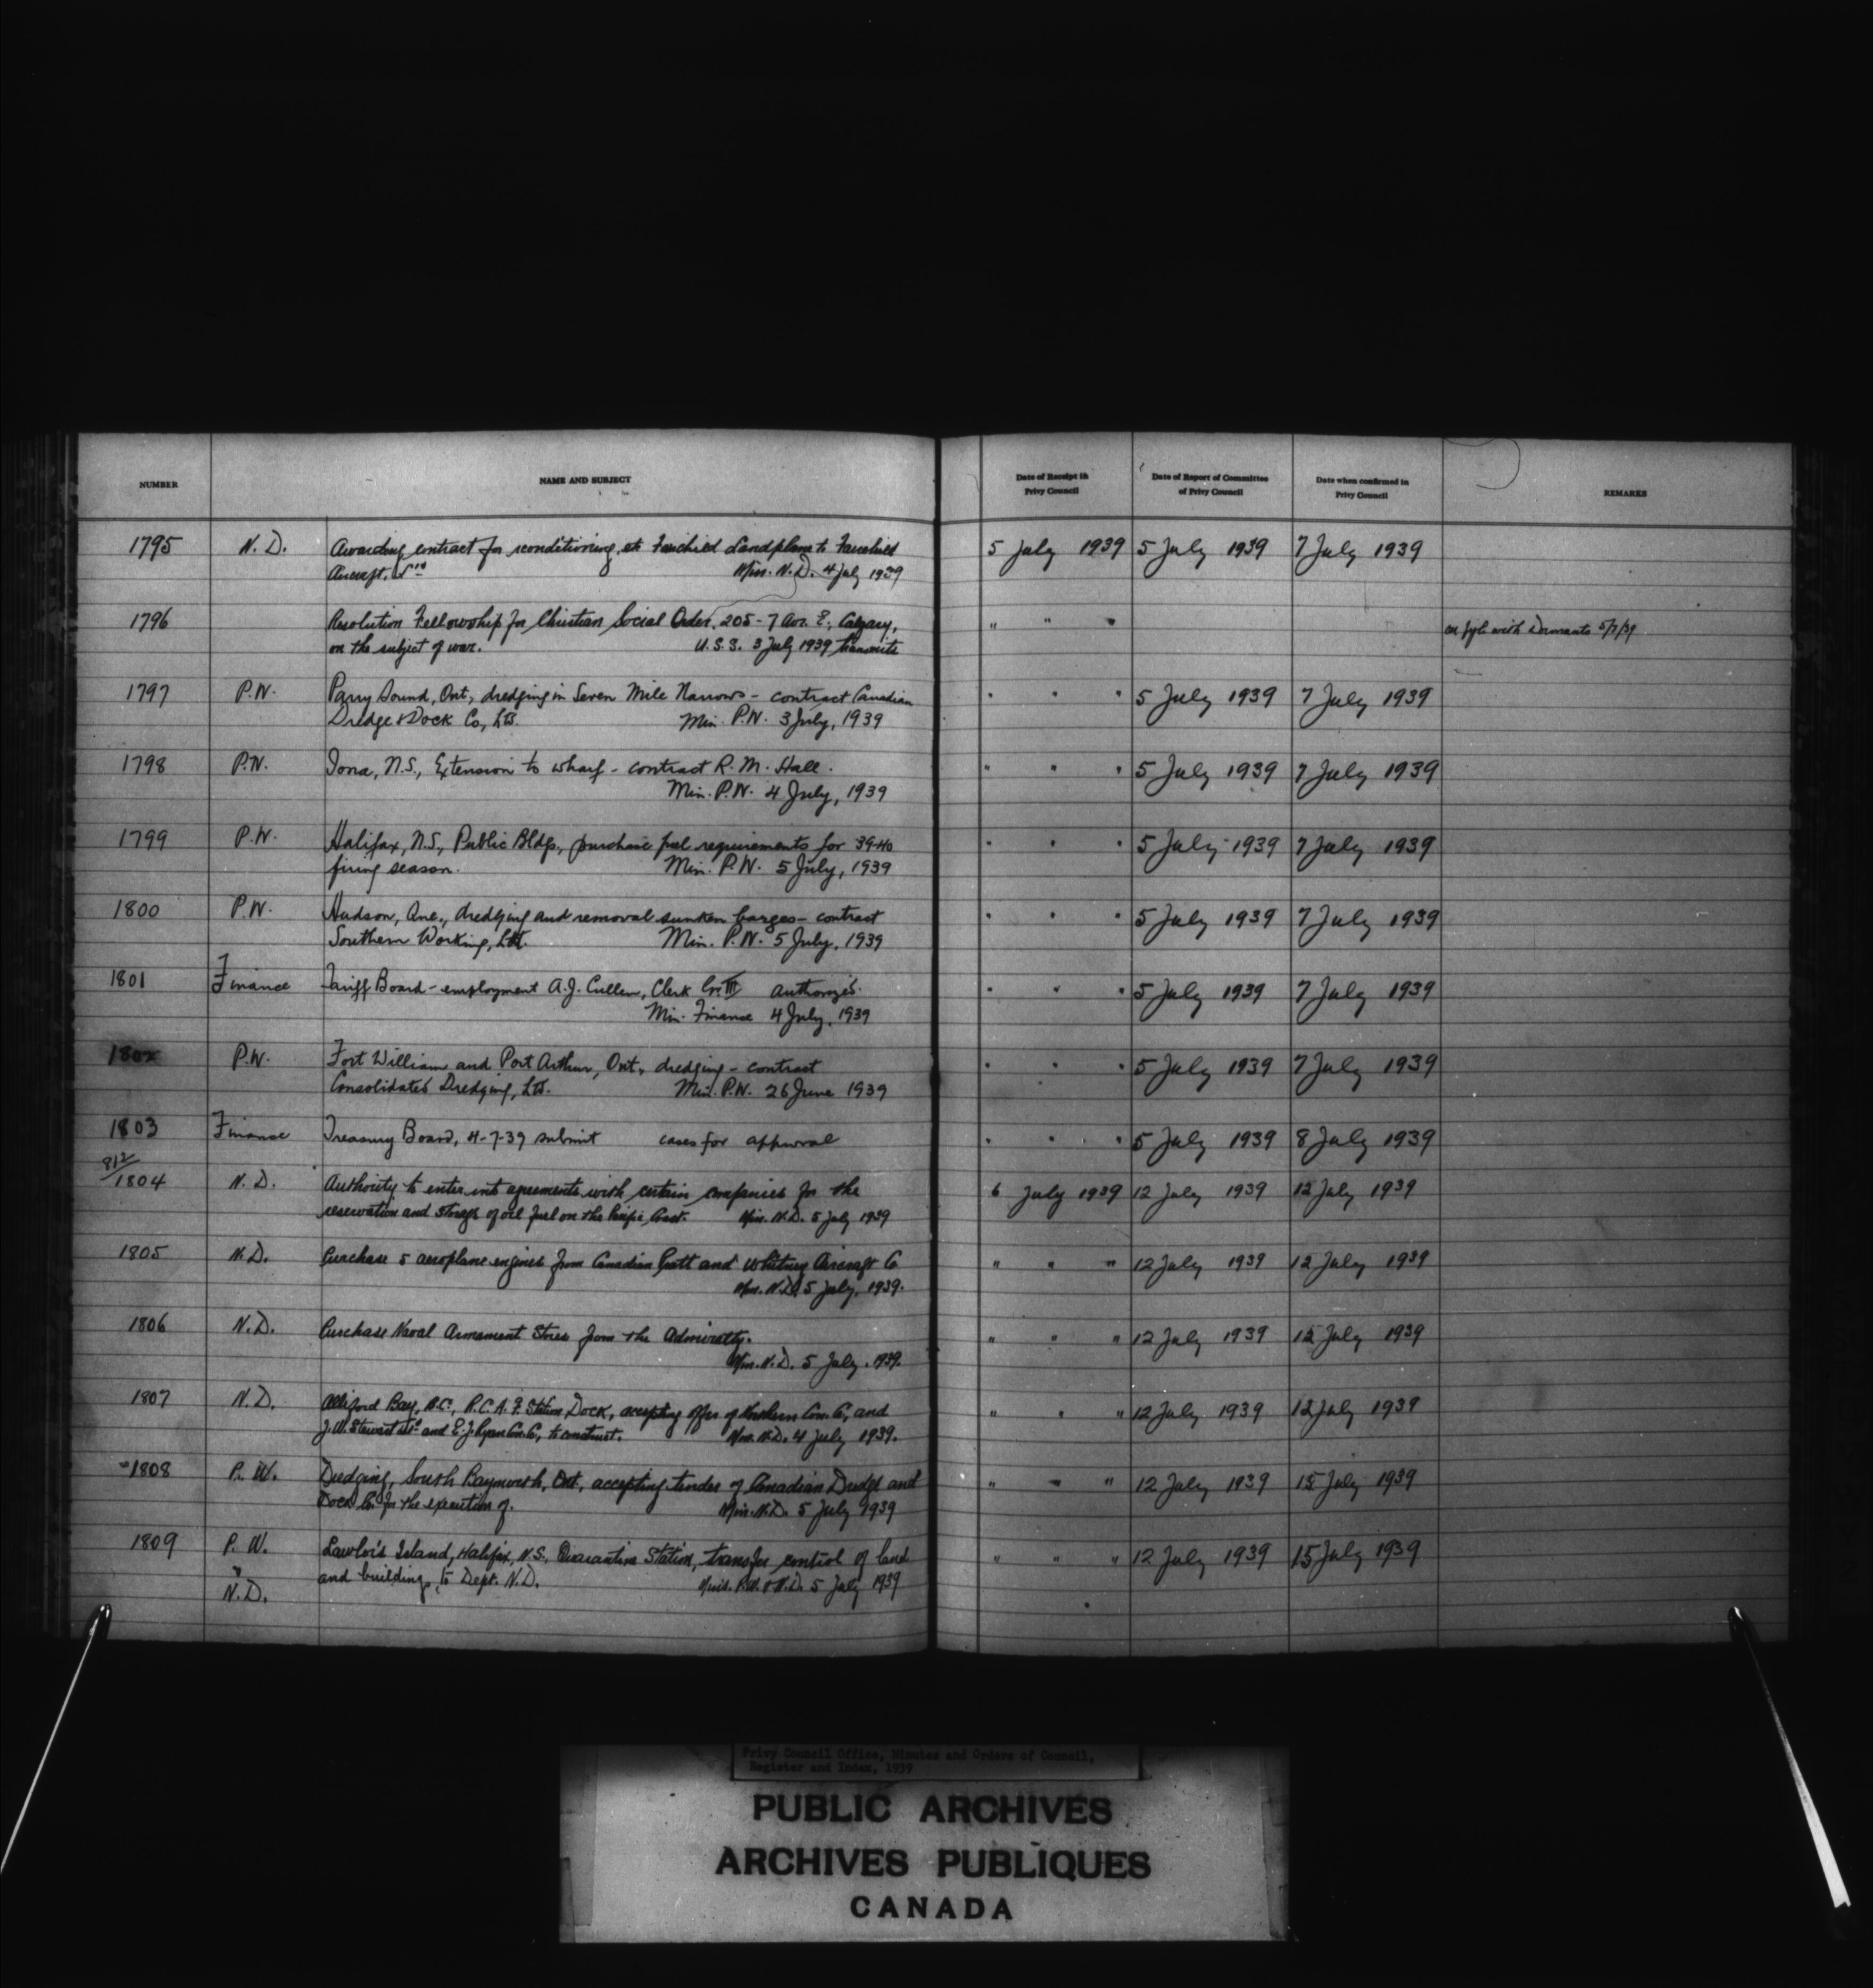 NUMBER NAME AND SUBJECT Date of Receipt in Privy Council Date of Report of Committee of Privy Council Date when confirmed in Privy Council REMARKS
1795 N.D. Awarding contract for reconditioning, etc Fairchild Landplane to Fairchild 5 July 1939 5 July 1939 7 July 1939
Aircraft, Ltd Min. N.D. 4 July 1939
1796 Resolution Fellowship for Christian Social Order, 205-7 Ave. E., Calgary, " " " on fyle with Dormants 5/7/39
on the subject of war. U.S.S. 3 July 1939 transmits
1797 P.W. Parry Sound, Ont., dredging in Seven Mile Narrows - contract Canadian " " " 5 July 1939 7 July 1939
Dredge & Dock Co., Ltd. Min. P.W. 3 July, 1939
1798 P.W. Iona, N.S., Extension to wharf - contract R. M. Hall. " " " 5 July 1939 7 July 1939
Min. P.W. 4 July, 1939
1799 P.W. Halifax, N.S., Public Bldgs, purchase fuel requirements for 39-40 " " " 5 July 1939 7 July 1939
firing season. Min. P.W. 5 July, 1939
1800 P.W. Hudson, Que., dredging and removal sunken barges - contract " " " 5 July 1939 7 July 1939
Southern Working, Ltd. Min. P.W. 5 July, 1939
1801 Finance Tariff Board - employment A.J. Cullen, Clerk Gr. III authorized. " " " 5 July 1939 7 July 1939
Min. Finance 4 July, 1939
1802 P.W. Fort William and Port Arthur, Ont., dredging - contract " " " 5 July 1939 7 July 1939
Consolidated Dredging, Ltd. Min. P.W. 26 June 1939
1803 Finance Treasury Board, 4-7-39 submit cases for approval " " " 5 July 1939 8 July 1939
812/1804 N.D. Authority to enter into agreements with certain companies for the 6 July 1939 12 July 1939 12 July 1939
reservation and storage of oil fuel on the Pacific Coast. Min. N.D. 5 July 1939
1805 N.D. Purchase 5 aeroplane engines from Canadian Pratt and Whitney Aircraft Co " " " 12 July 1939 12 July 1939
Min. N.D. 5 July, 1939.
1806 N.D. Purchase Naval Armament Stores from the Admiralty. " " " 12 July 1939 12 July 1939
Min. N.D. 5 July. 1939.
1807 N.D. Alliford Bay, B.C., R.C.A.F. Station, Dock, accepting offer of Northern Con. Co., and " " " 12 July 1939 12 July 1939
J.W. Stewart Ltd and E.J. Ryan Con. Co., to construct. Min. N.D. 4 July 1939.
1808 P.W. Dredging, South Baymouth, Ont., accepting tender of Canadian Dredge and " " " 12 July 1939 15 July 1939
Dock Co. for the execution of. Min. N.D. 5 July 1939
1809 P.W. Lawlor's Island, Halifax, N.S., Quarantine Station, transfer control of land " " " 12 July 1939 15 July 1939
" N.D. and buildings to Dept. N.D. Mins. P.W. & N.D. 5 July 1939
Privy Council Office, Minutes and Orders of Council,
Register and Index, 1939
PUBLIC ARCHIVES
ARCHIVES PUBLIQUES
CANADA